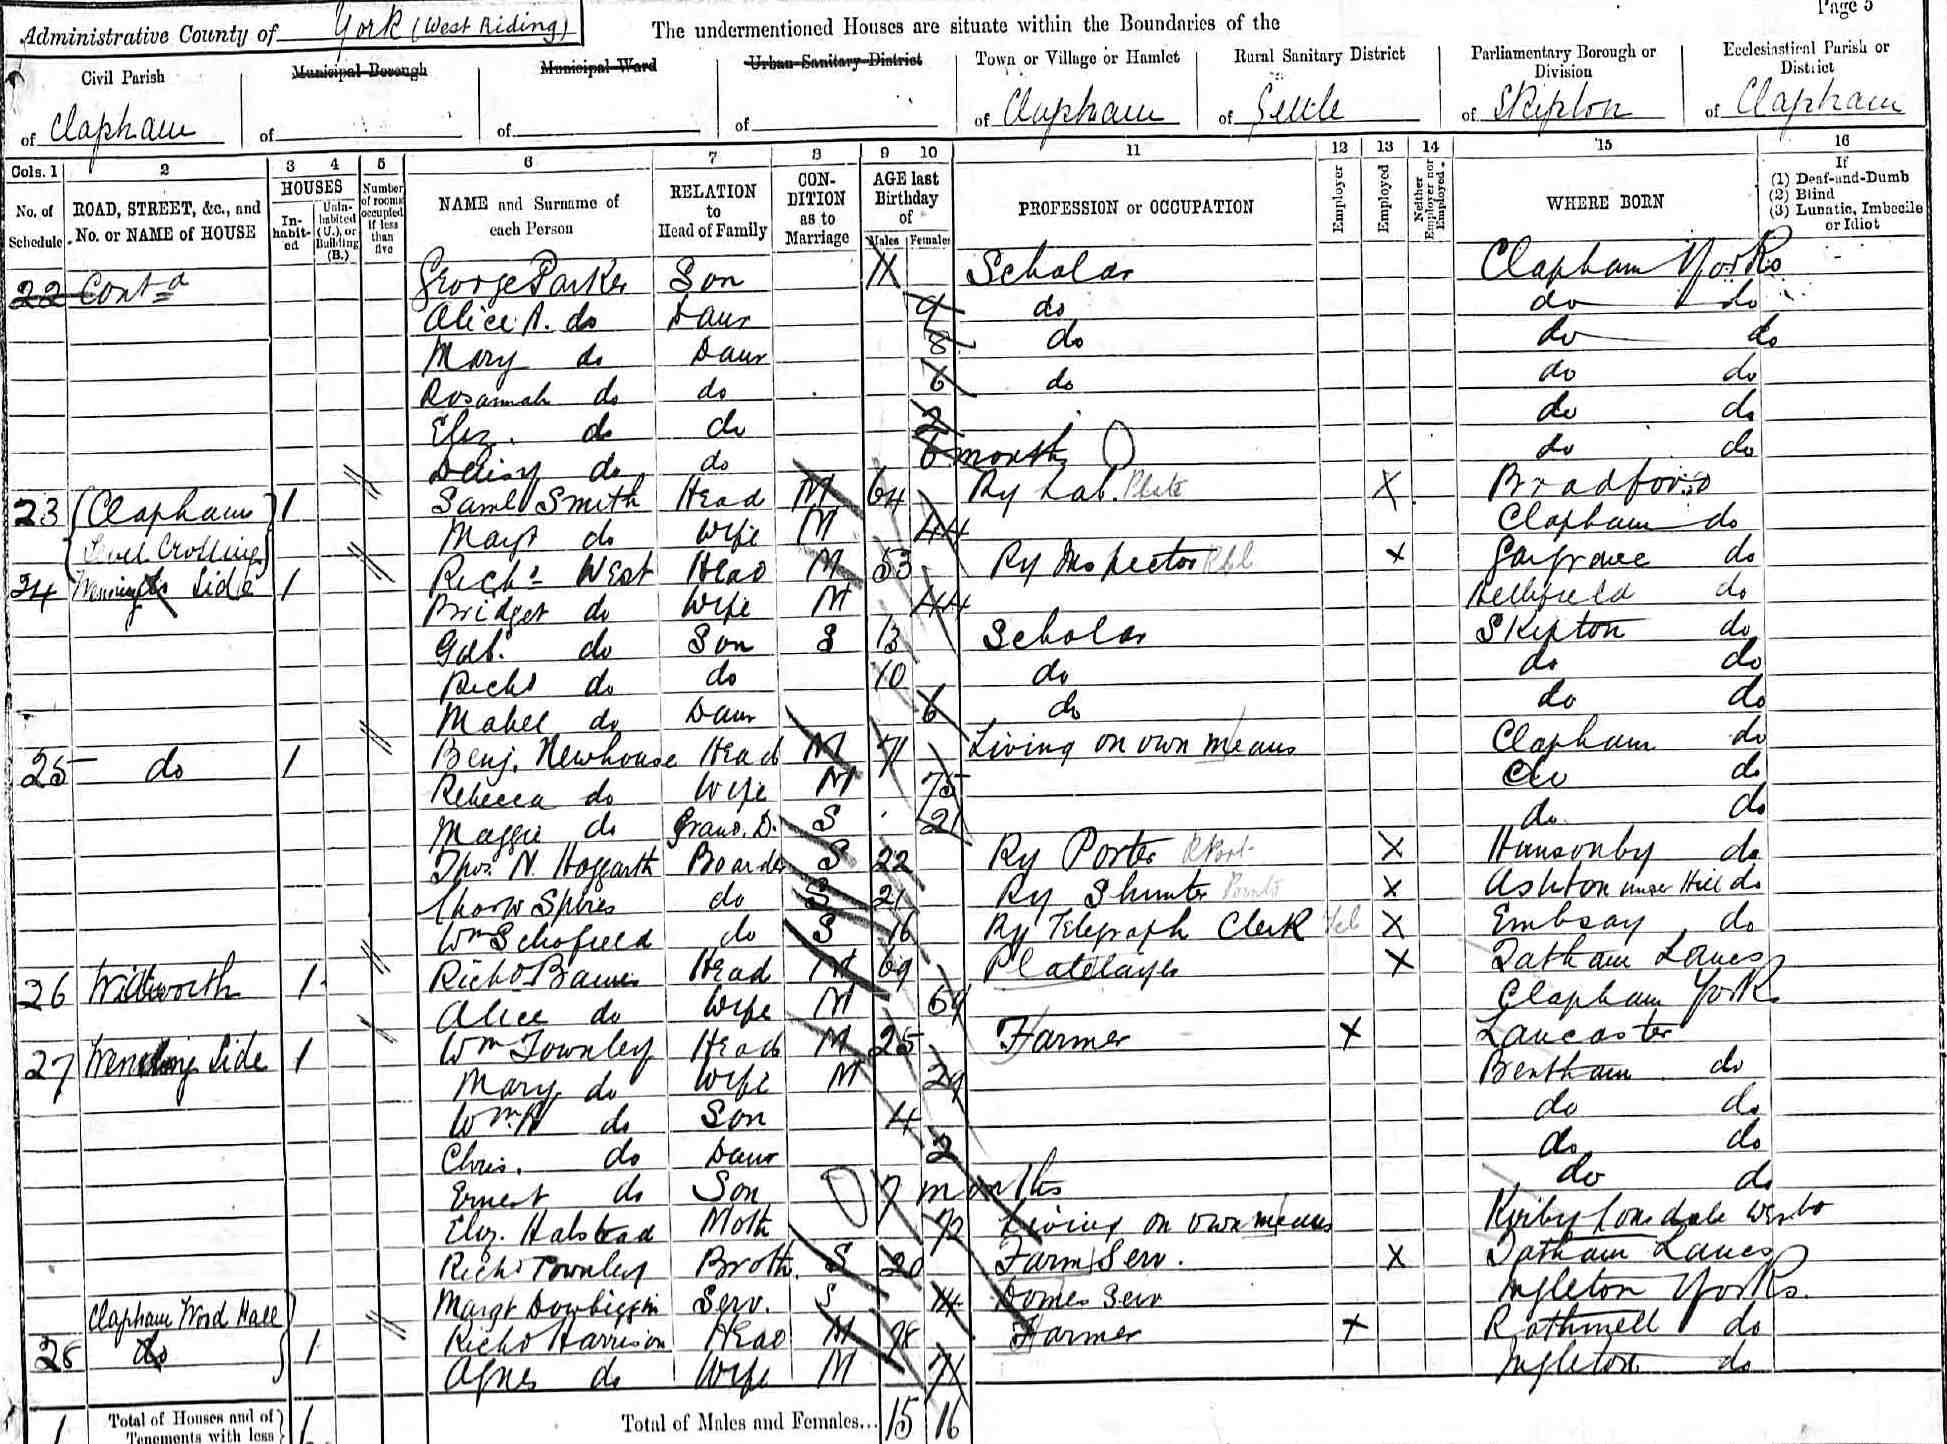 Page 5
Administrative County of York (West Riding)
The undermentioned Houses are situate within the Boundaries of the
Civil Parish of Clapham
Municipal Borough of
Municipal Ward of
Urban Sanitary District of
Town or Village or Hamlet of Clapham
Rural Sanitary District of Settle
Parliamentary Borough or Division of Skipton
Ecclesiastical Parish or District of Clapham
Cols. 1 2 3 4 5 6 7 8 9 10 11 12 13 14 15 16
No. of Schedule
ROAD, STREET, &c., and No. or NAME of HOUSE
HOUSES
Inhabited
Uninhabited (U.), or Building (B.)
Number of rooms occupied if less than five
NAME and Surname of each Person
RELATION to Head of Family
CONDITION as to Marriage
AGE last Birthday of
Males Females
PROFESSION or OCCUPATION
Employer
Employed
Neither Employer nor Employed.
WHERE BORN
If
(1) Deaf-and-Dumb
(2) Blind
(3) Lunatic, Imbecile or Idiot
22 Contd George Parker Son 11 Scholar Clapham Yorks
Alice A. do Daur 9 do do do
Mary do Daur 8 do do do
Rosannah do do 6 do do do
Eliz. do do 2 do do
Daisy do do 6 months do do
23 Clapham Level Crossing 1 Saml Smith Head M 64 Ry Lab. Plate X Bradford
Margt do Wife M 44 Clapham do
24 Side 1 Richd West Head M 53 Ry Inspector X Gargrave do
Bridget do Wife M 44 Hellifield do
do Son S 13 Scholar Skipton do
Richd do do 10 do do do
Mabel do Daur 6 do do do
25 do 1 Benj. Newhouse Head M 71 Living on own means Clapham do
Rebecca do Wife M 75 do do
Maggie do Grand. D. S 21 do do
Thos. N. Haggarth Boarder S 22 Ry Porter X do
Spires do S 21 Ry Shunter X Ashton under Hill do
Wm Schofield do S 16 Ry Telegraph Clerk Tel X Embsay do
26 1 Richd Head M 69 Platelayer X Tatham Lancs
Alice do Wife M 64 Clapham York
27 Wenning Side 1 Wm Townley Head M 25 Farmer X Lancaster
Mary do Wife M 29 Bentham do
Wm. R do Son 4 do do
Chris. do Daur 2 do do
Ernest do Son 7 months do do
Eliz. Halstead Moth 72 Living on own means Kirby Lonsdale
Richd Townley Broth. S 20 Farm Serv. X Tatham Lancs
Margt Dowbiggin Serv. S 14 Domes Serv Ingleton Yorks.
Clapham Wood Hall
28 do 1 Richd Harrison Head M 78 Farmer X Rathmell do
Agnes do Wife M 71 Ingleton do
1 Total of Houses and of Tenements with less 1
Total of Males and Females... 15 16